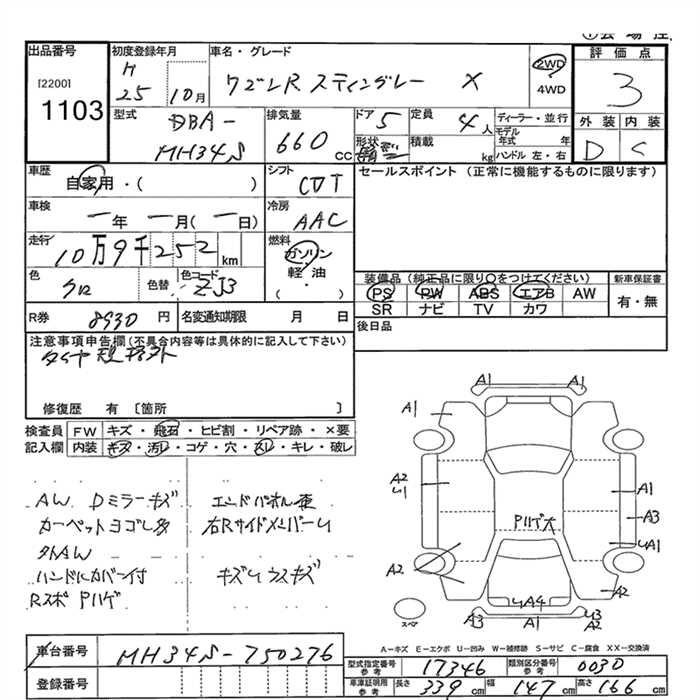 出品番号
[2200]
1103
初度登録年月
H
25
10月
車名・グレード
ワゴンR スティングレー X
2WD
4WD
評価点
3
外装 内装
D C
型式
DBA-
MH34S
排気量
660 cc
ドア 5
形状
定員 4人
積載 kg
ディーラー・並行
モデル年式 年
ハンドル 左・右
車歴
自家用・( )
シフト
CVT
セールスポイント (正常に機能するものに限ります)
車検
ー年 ー月(ー日)
冷房
AAC
走行
10万9千252km
燃料
ガソリン
軽油
( ・ )
色
クロ
色替
色コード
ZJ3
装備品(純正品に限り○をつけてください)
PS PW ABS エアB AW
SR ナビ TV カワ
新車保証書
有・無
R券 8930円
名変通知期限 月 日
後日品
注意事項申告欄(不具合内容等は具体的に記入して下さい)
修復歴 有 〔箇所 〕
検査員記入欄
FW キズ・飛石・ヒビ割・リペア跡・×要
内装 キズ・汚レ・コゲ・穴・スレ・キレ・破レ
AW Dミラーキズ
カーペットヨゴレ多
外AW
ハンドルカバー付
RスポPハゲ
エンドパネル歪
右RサイドメンバーU
キズUウスキズ
A1
A1
A1
A2
U1
A1
A3
UA1
Pハゲ大
A2
A2
UA4
A1
U3
A2
スペア
A-キズ E-エクボ U-凹み W-補修跡 S-サビ C-腐食 XX-交換済
車台番号
MH34S-750276
登録番号
型式指定番号 参考
17346
類別区分番号 参考
0030
車庫証明用 参考
長さ 339cm 幅 147cm 高さ 166cm